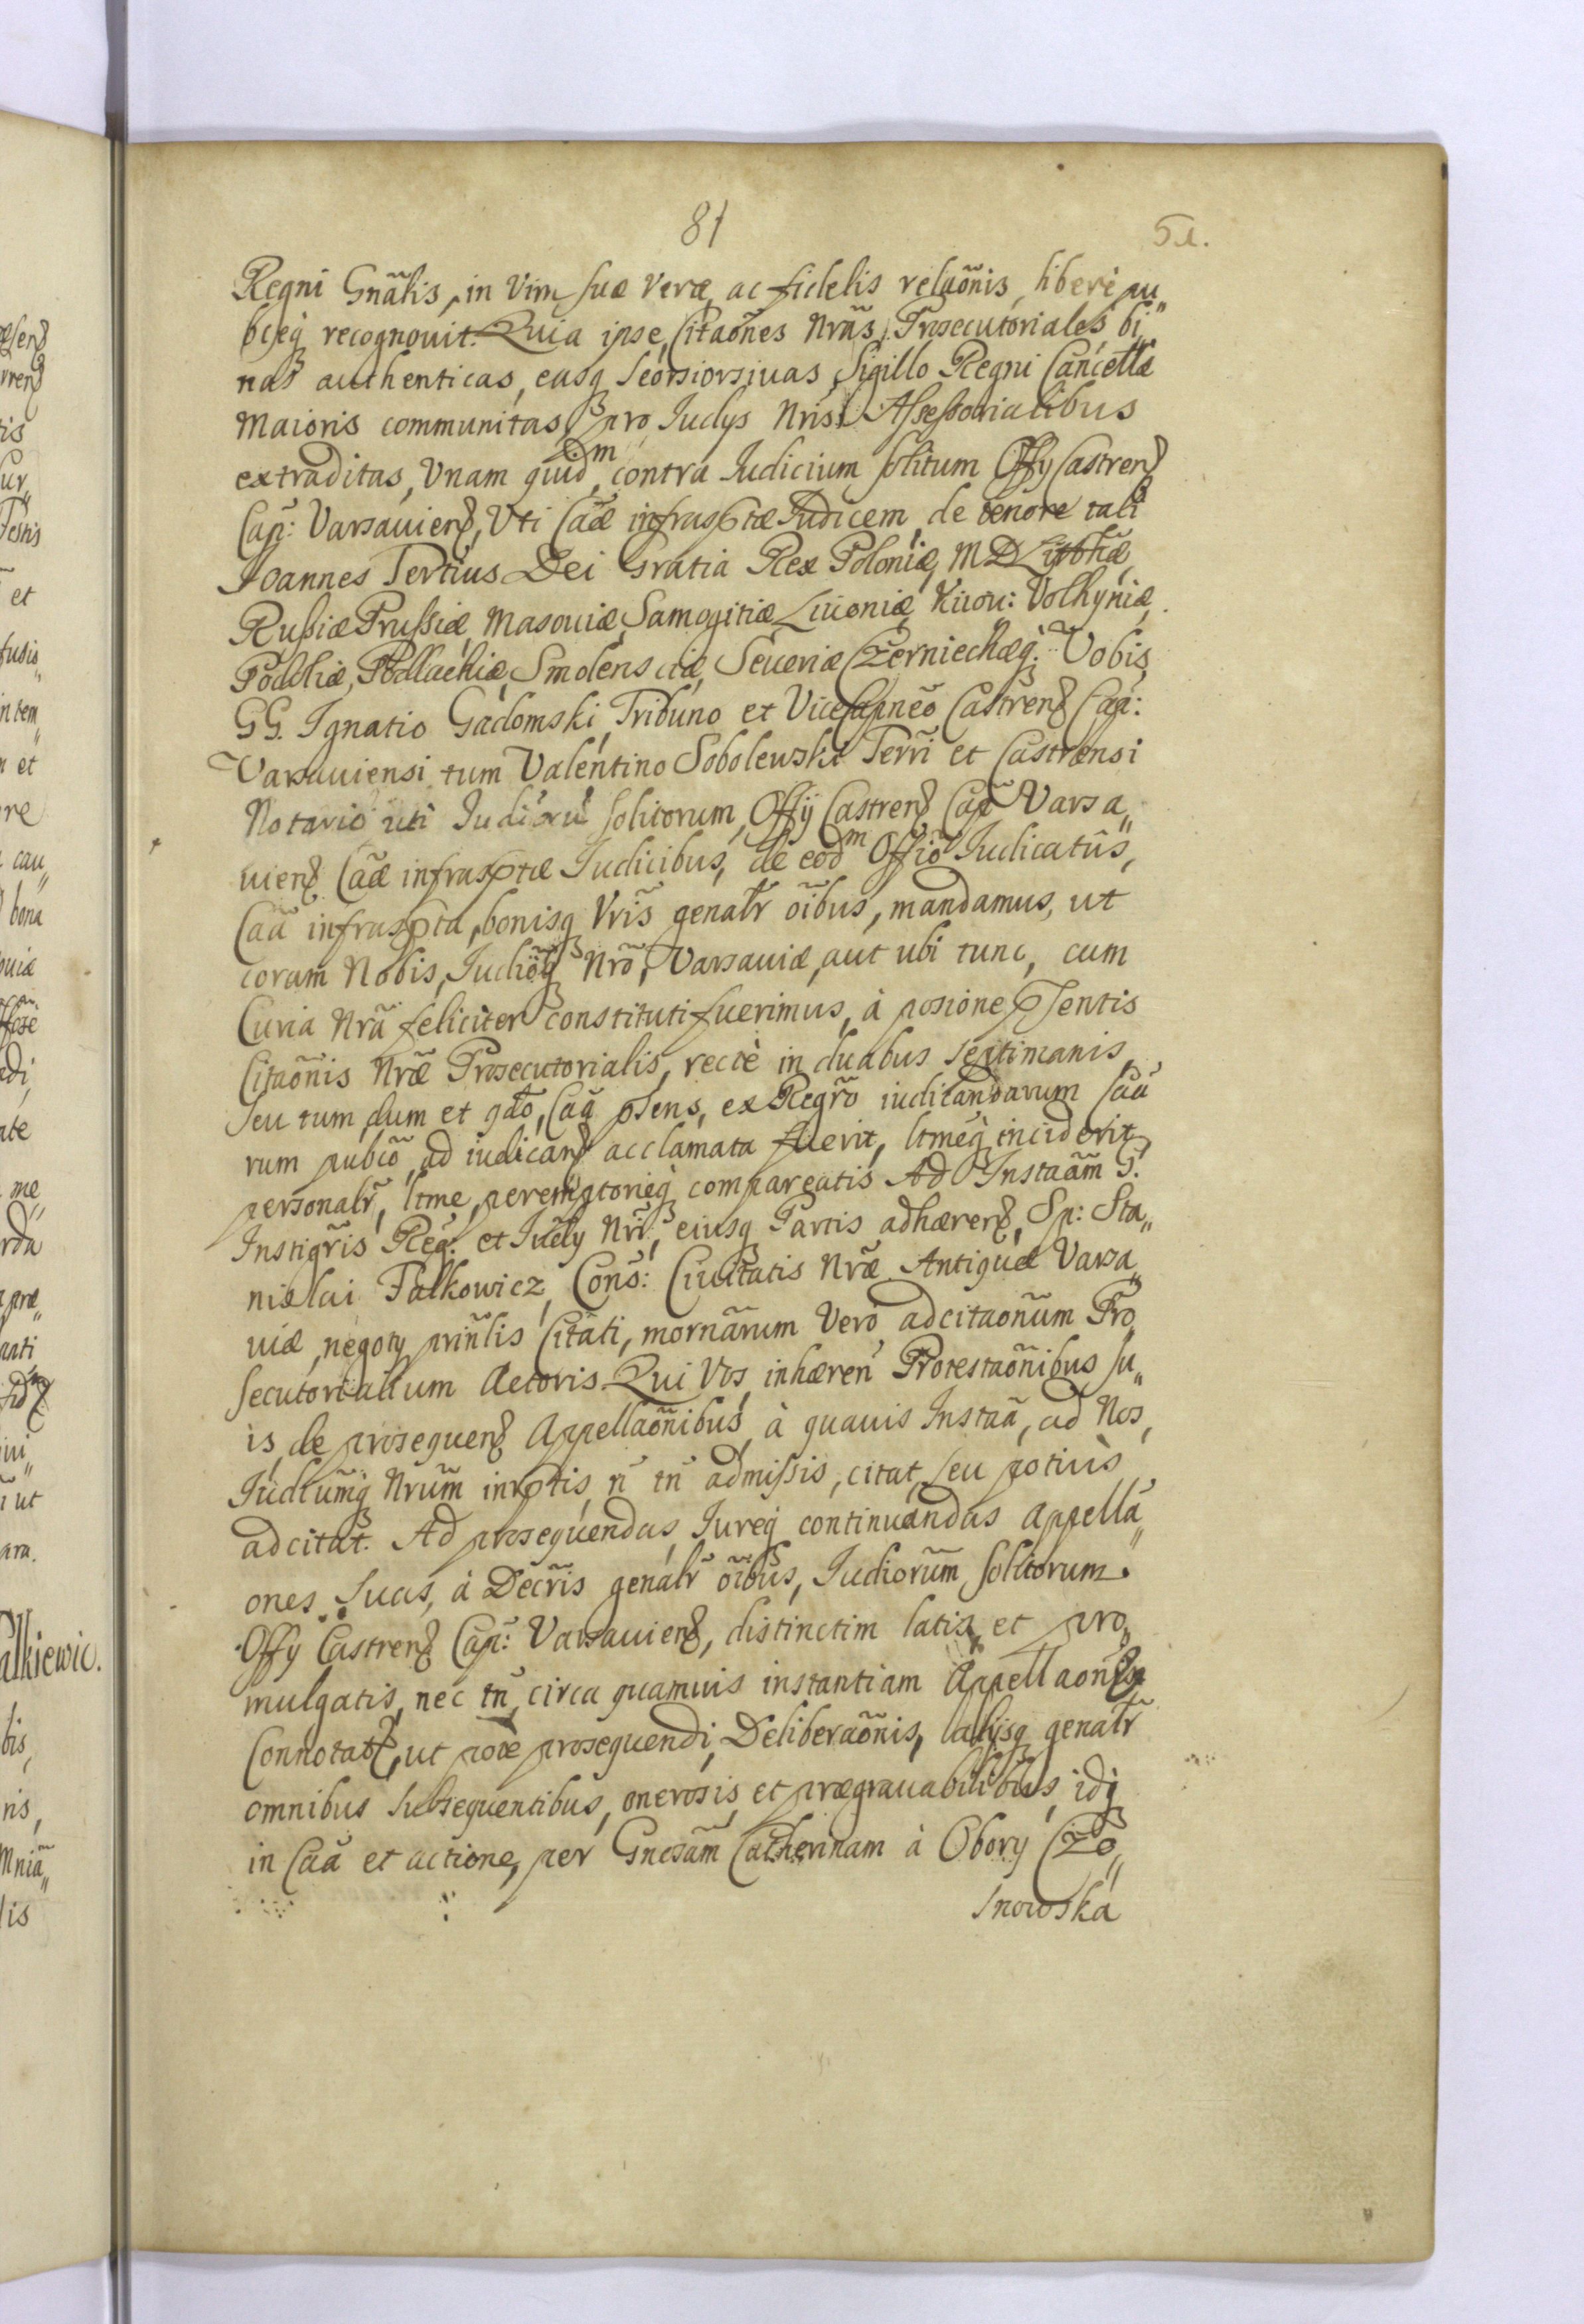 81
51.
Regni Gnãlis, in Vim suæ Veræ ac fidelis relaõnis, liberè pu„
bceq́ recognouit. Quia ipse Citaõnes Nrãs Prosecutoriales bi„
nas authenticas, easq́ Seorsiorsiuas Sigillo Regni Cancellæ
Maioris communitas, pro Iudys Nris Assessorialibus
extraditas, Unam quidm contra Iudicium solitum Offy Castren̄
Cap: Varsauien̄, Uti Cãæ infrasptæ Iudicem de tenore tali
Ioannes Tertius Dei Gratia Rex Poloniæ, M D Litthũæ,
Russiæ Prussiæ, Masouiæ, Samogitiæ, Liuoniæ, Kiiou: Volhyniæ,
Podoliæ, Podlachiæ, Smolensciæ, Seueriæ Czerniechæq́. Vobis
GG. Ignatio Gadomski Tribuno et ViceCapneõ Castren̄ Cap:
Varsauiensi, tum Valentino Sobolewski Terrĩ et Castrensi
Notario uti Iudiorũ solitorum, Offÿ Castren̄ Cap̃ Varsa„
uien̄ Cãæ infrasptæ Iudicibus, de eodm Offiõ Iudicatũs,
Caã infraspta, bonisq́ Vrĩs genalr̃ oĩbus, mandamus, ut
coram Nobis, Iudiõq́ Nrõ, Varsauiæ, aut ubi tunc, cum
Curia Nrã feliciter constituti fuerimus, à posiõne pSentis
Citaõnis Nræ̃ Prosecutorialis, rectè in duabus Septimanis
Seu tum, dum et qdõ, Caã pSens, ex Regrõ iudicandarum Caũ
rum pubcõ, ad iudican̄ acclamata fuerit, ltmeq́ inciderit,
personalr̃, ltme, peremptorieq́ compareatis Ad Instaãm G.
Instigrĩs Reg̃: et Iudy Nrĩ, eiusq́ Partis adhæren̄, Sp: Sta„
nislai Falkowicz, Cons: Ciuitatis Nræ̃ Antiquæ Varsa„
uiæ, negoty prin̄lis Citati, mornãrum Verò adcitaõnum Pro„
secutorialium Actoris. Qui Vos inhæren̄ Protestaõnibus su„
is, de prosequen̄ Appellaõnibus, à quauis Instaã, ad Nos,
Iudiumq́ Nrũm interptis, ñ tñ admissis, citat, seu potiùs
adcitat. Ad prosequendas, Iureq́ continuandas Appella„
ones Suas, à Decrĩs genalr̃ oĩbus, Iudiorũm Solitorum
Offy Castren̄ Cap: Varsauien̄, distinctim latis, et pro„
mulgatis, nec tñ circa quamuis instantiam Appellaones
Connotat, ut pote prosequendi, Deliberaõnis, alijsq́ genalr̃
omnibus Subsequentibus, onerosis et prægrauabilibus, idq́
in Caã et actione, per Gnesãm Catherinam à Obory Czo„
snowska